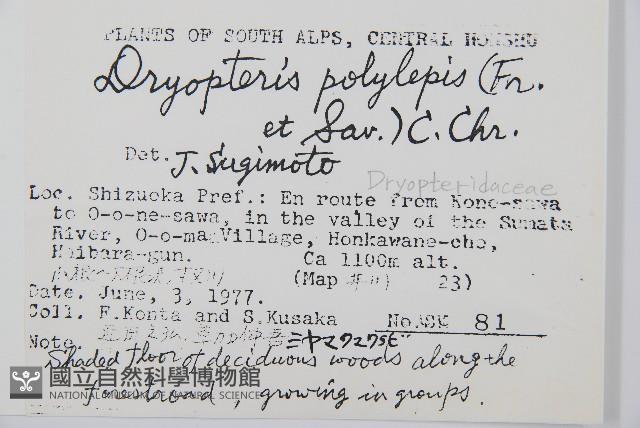 PLANTS OF SOUTH ALPS, CENTRAL HONSHU
Dryopteris polylepis (Fr.
et Sav.) C. Chr.
Det. J. Sugimoto
Dryopteridaceae
Loc. Shizuoka Pref.: En route from Kono-sawa
to O-o-ne-sawa, in the valley of the Sumata
River, O-o-ma Village, Honkawane-cho,
Haibara-gun. Ca 1100m alt.
(Map 23)
Date. June, 3, 1977.
Coll. F.Konta and S.Kusaka No.ASK 81
Note. ミヤマクマワラビ
Shaded floor of deciduous woods along the
, growing in groups.
國立自然科學博物館
NATIONAL MUSEUM OF NATURAL SCIENCE